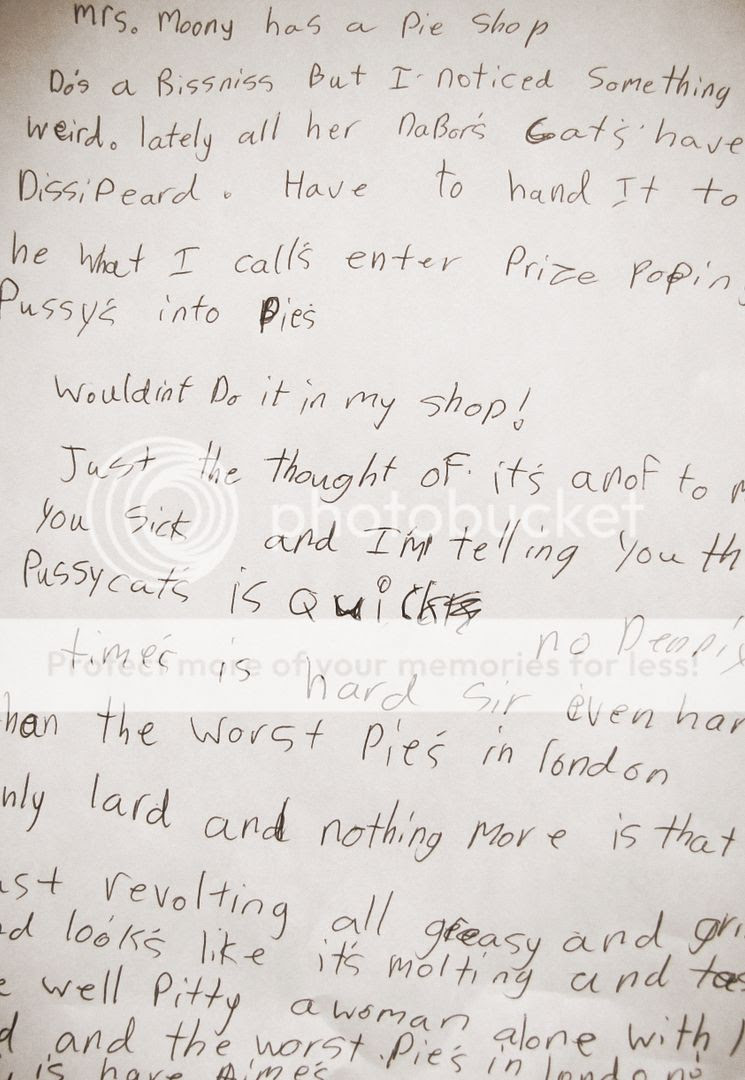 Mrs. Moony has a Pie Shop
Do's a Bissniss But I noticed Something
weird. lately all her NaBor's Cat's have
DissiPeard. Have to hand It to
he what I call's enter Prize Popin
Pussy's into Pies
wouldin't Do it in my shop!
Just the thought of it's anof to
You Sick and I'm telling You th
Pussycat's is Quick
no
time's is hard Sir even har
han the worst Pie's in london
nly lard and nothing More is that
ust revolting all greasy and gri
d look's like it's molting and tas
well Pitty a woman alone with l
d and the worst Pie's in london
is have Aime's
photobucket
Protect more of your memories for less!